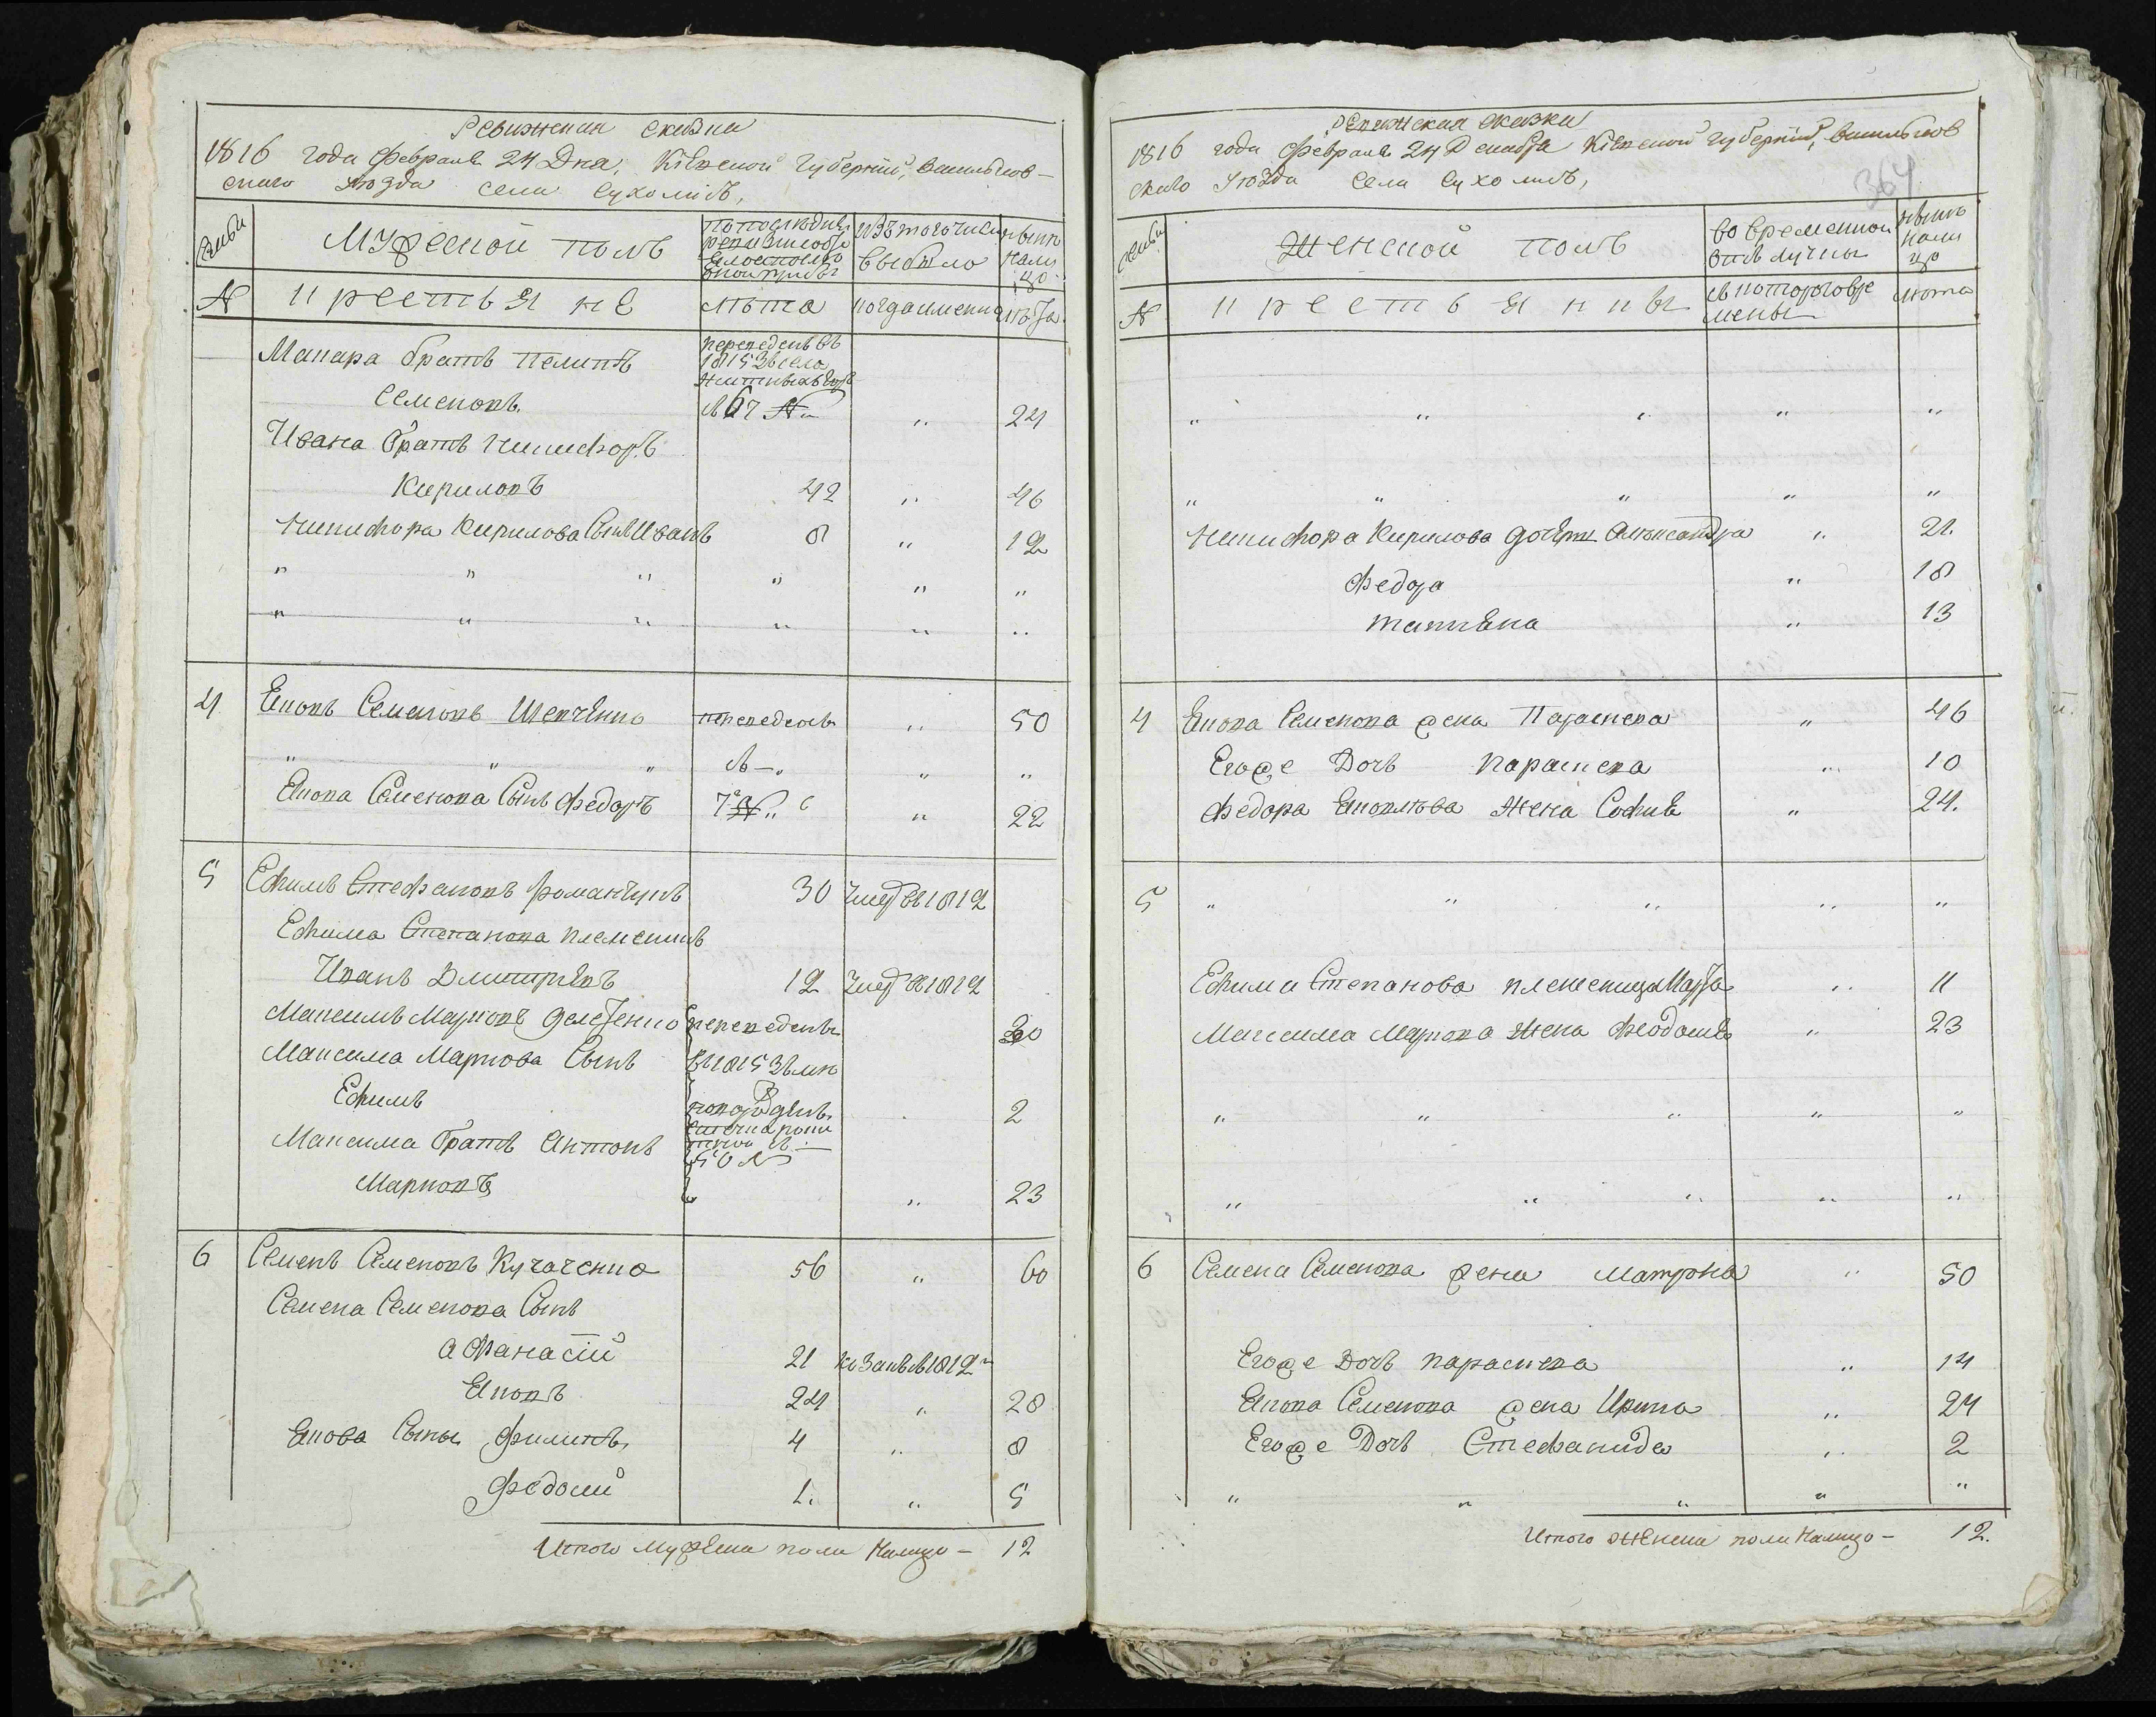 Ревизская сказка
1816 года Февраля 24 Дня, Кіевской Губерніи, Васильков-
скаго уезда села Сухолисъ,
Семьи
Мужеской полъ
По последней ревизии состояло
Изъ того числа выбыло
Ныне на лицо
№
крестьяне
Лета
когда именно
лета
Макара братъ Пилипъ
переведенъ въ
1815 зъ села
Семеновъ
67 №
"
24
Ивана братъ Никифоръ
Кириловъ
42
"
46
Никифора Кирилова Сынъ Иванъ
8
"
12
" " " " " "
" " " " " "
4
Яковъ Семеновъ Шевченко
переведенъ
"
50
" " " " "
Якова Семенова Сынъ Федоръ
7 №
"
22
5
Ефимъ Стефановъ Романчукъ
30
Умер въ 1812
Ефима Степанова племенникъ
Иванъ Дмитріевъ
12
Умер въ 1812
Максимъ Марковъ
переведенъ
30
Максима Маркова Сынъ
въ 1815 зъ
Ефимъ
2
Максима братъ Антонъ
50 №
Марковъ
"
23
6
Семенъ Семеновъ Кучаченко
56
"
60
Семена Семенова Сынъ
Афанасій
21
въ 1812
Яковъ
24
"
28
Якова Сыны Филипъ
4
"
8
Федосий
1.
"
5
Итого мужеска пола налицо - 12
Ревизская сказка
1816 года Февраля 24 Кіевской Губерніи, Васильков
скаго Уезда Села Сухолисъ,
364
Семьи
Женской полъ
Во временной отлучке
Ныне на лицо
№
крестьянки
съ которого времены
Лета
" " " " "
" " " " "
Никифора Кирилова дочери Александра
"
21.
Федора
"
18
Татіяна
"
13
4
Якова Семенова жена Параскева
"
46
Его же Дочь Параскева
"
10
Федора Яковлева жена Софія
"
24.
5
" " " " "
Ефима Степанова племеница Марфа
"
11
Максима Маркова жена Феодосия
"
23
" " " " "
" " " " "
6
Семена Семенова жена Матрона
"
50
Его же Дочь Параскева
"
14
Якова Семенова жена Ирина
"
24
Его же Дочь Стефанида
"
2
" " " " "
Итого женска пола налицо - 12.